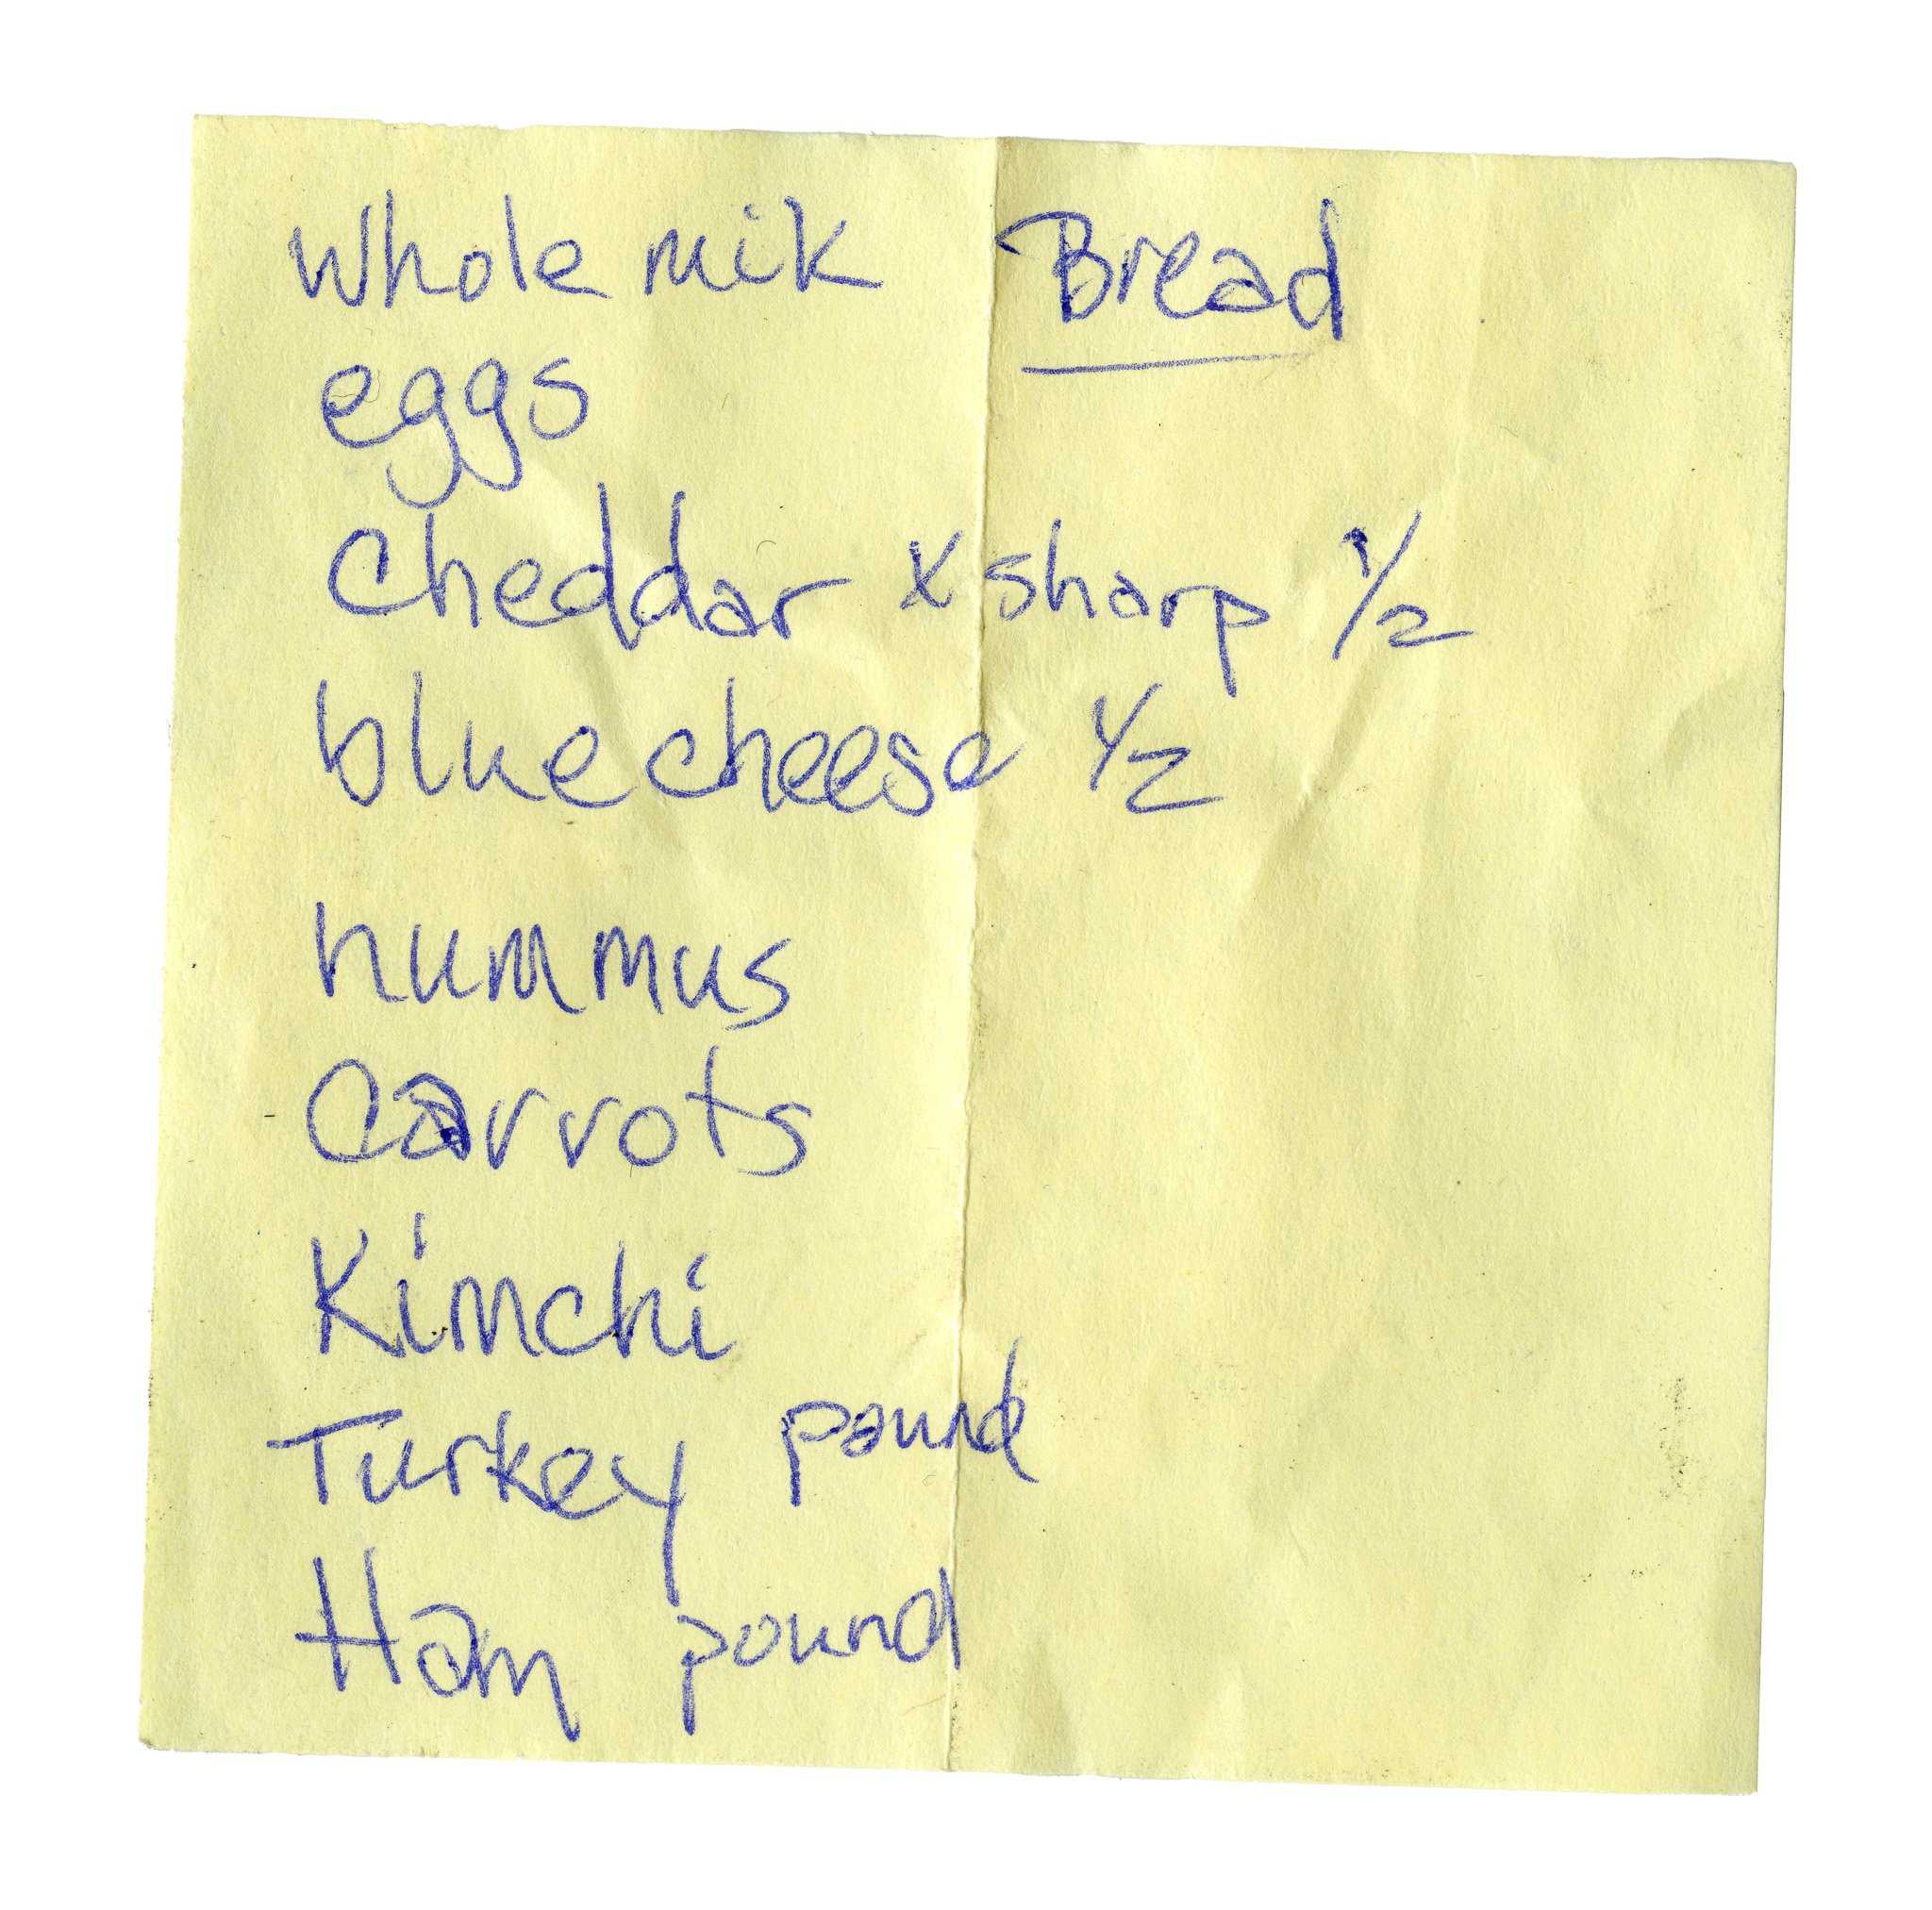 whole mik Bread
eggs
Cheddar x sharp 1/2
blue cheese 1/2
hummus
Carrots
Kimchi
Turkey pound
Ham pound